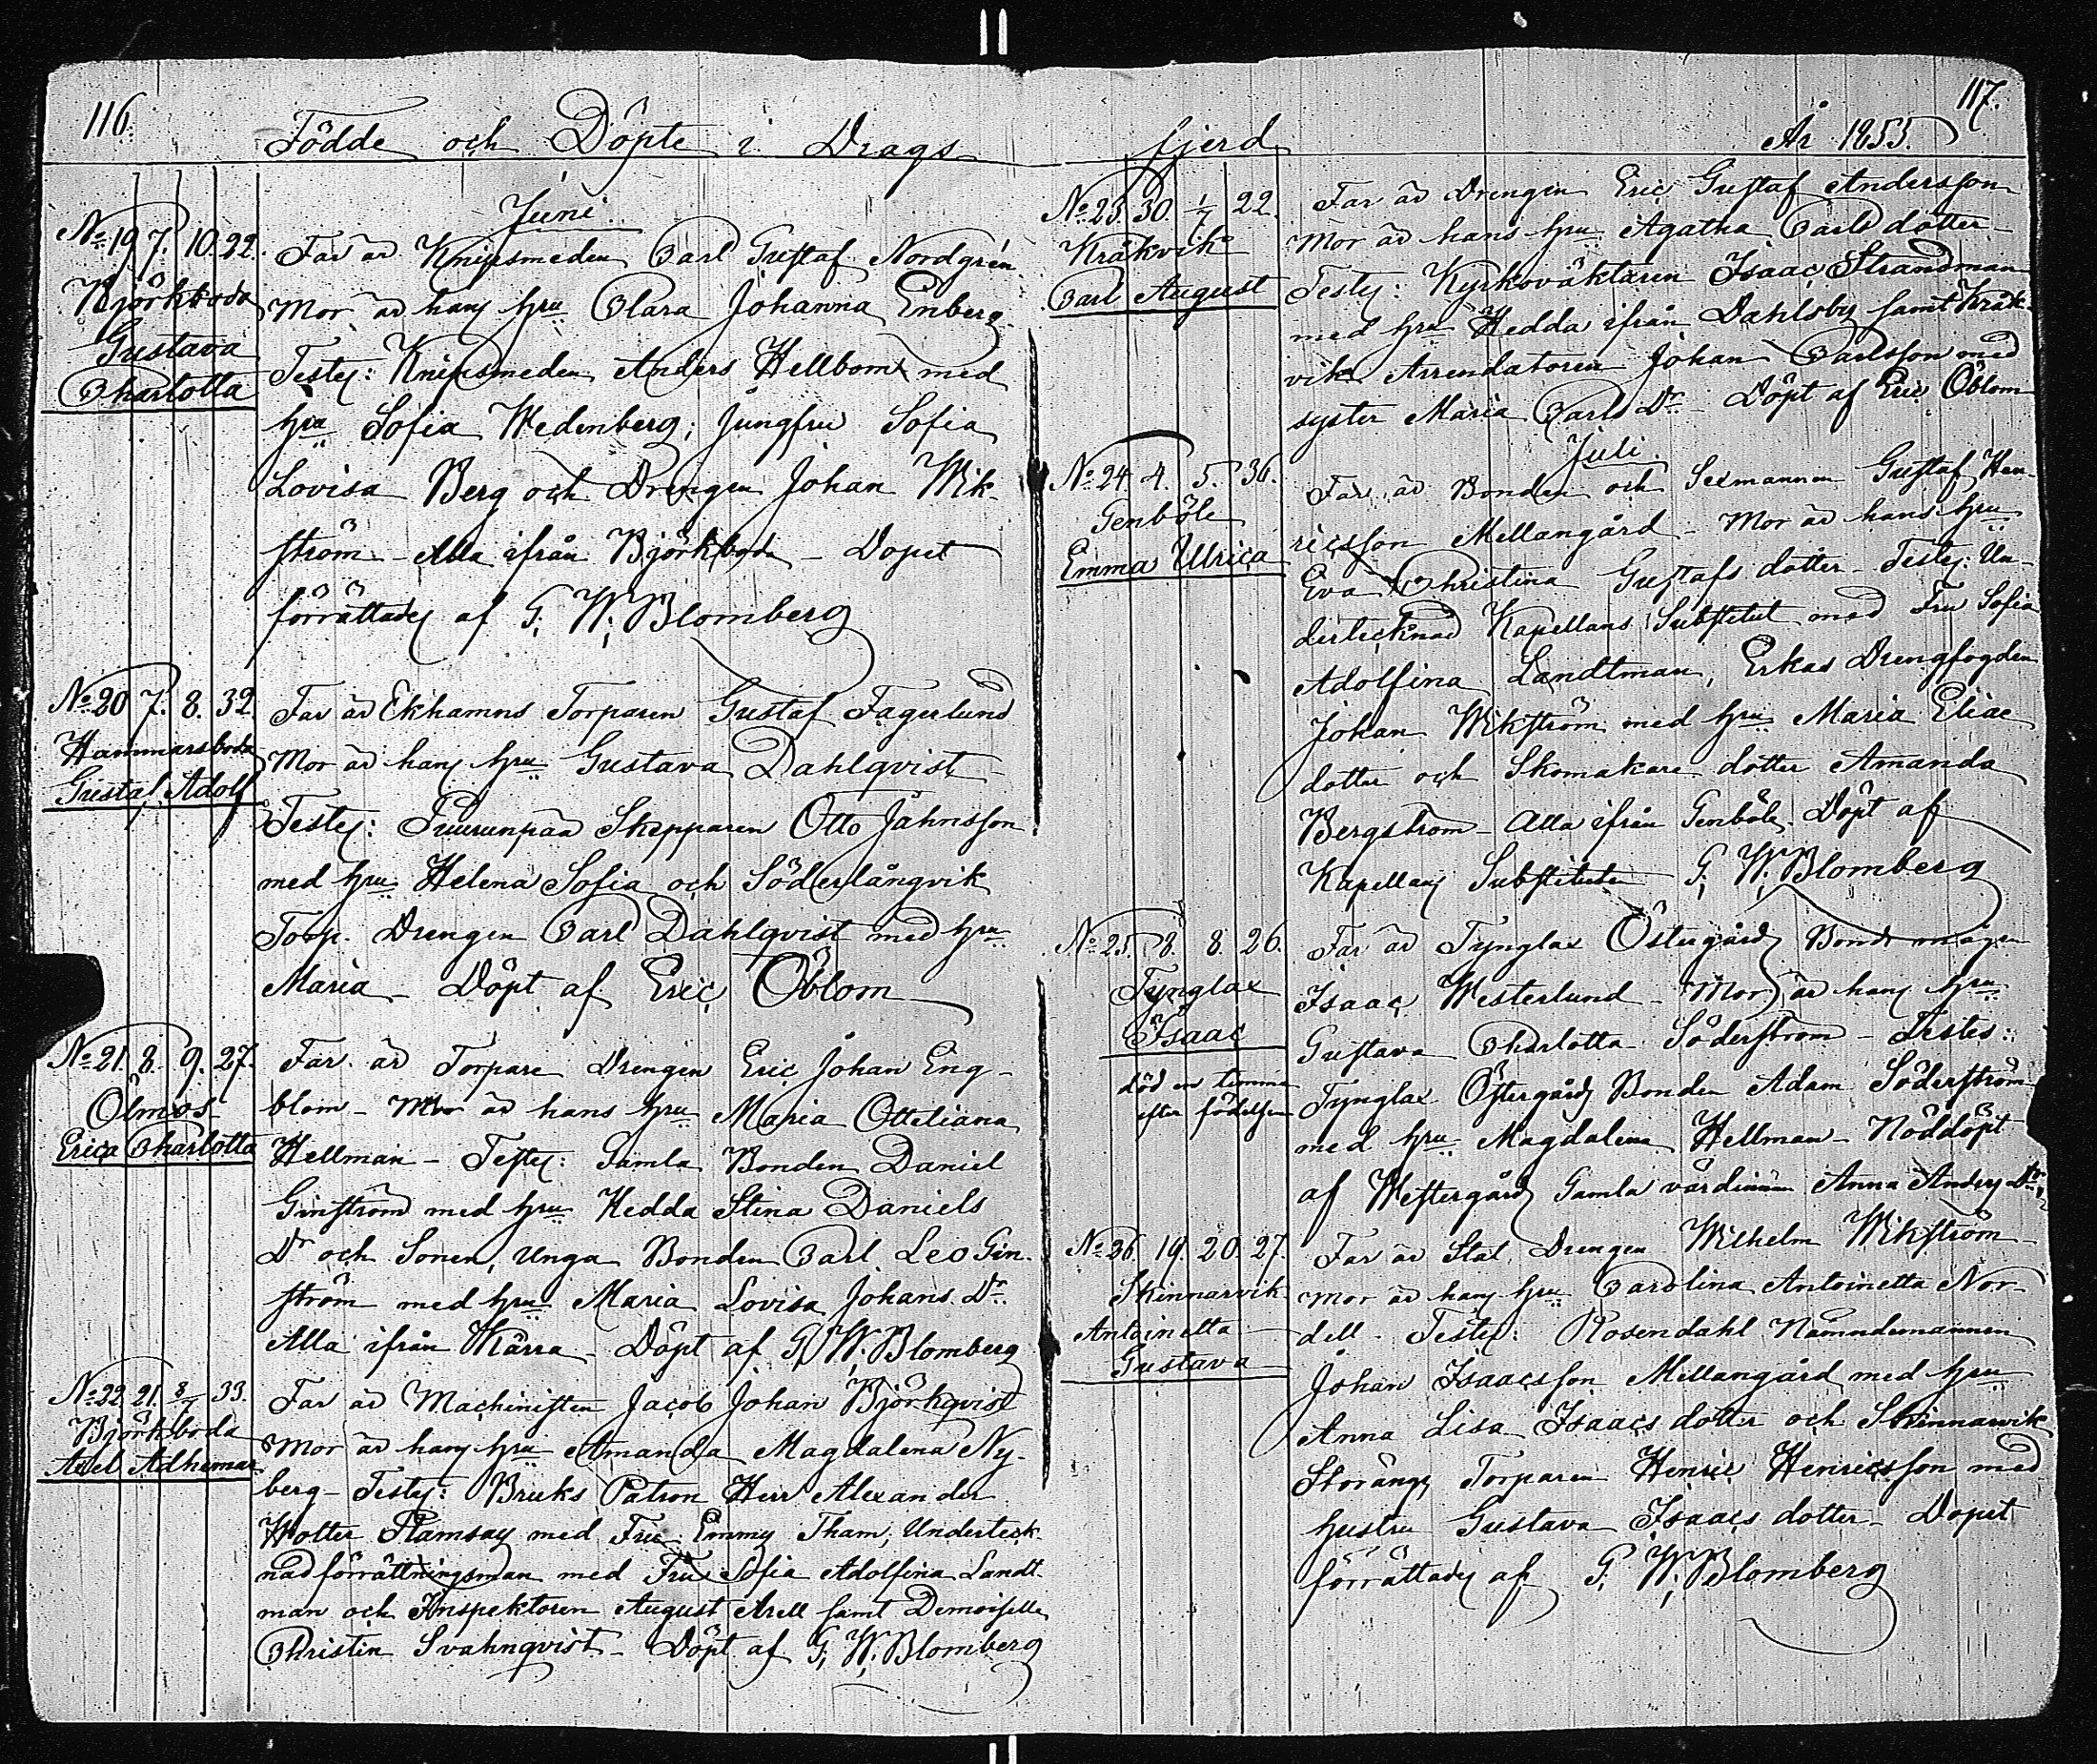 116.
Födde och Döpte i Drags
Juni.
No 19 7. 10. 22.
Björkboda
Gustava
Charlotta
Far är Knipsmeden Carl Gustaf Nordgrén
Mor är hans hru Clara Johanna Enberg
Testes: Knipsmeden Anders Hellbom med
hru Sofia Wedenberg; Jungfru Sofia
Lovisa Berg och Drengen Johan Wik-
ström - Alla ifrån Björkboda - Dopet
förrättades af G. W. Blomberg
No 20 7. 8. 32.
Hammarsboda
Gustaf Adolf
Far är Ekhamns Torparen Gustaf Fagerlund
Mor är hans hru Gustava Dahlqvist -
Testes: Puurunpää Skepparen Otto Jahnsson
med hru Helena Sofia och Söderlångvik
Torp. Drengen Carl Dahlqvist med hru
Maria - Döpt af Eric Öblom
No 21 8. 9. 27.
Ölmos
Erica Charlotta
Far är Torpare Drengen Eric Johan Eng-
blom - Mor är hans hru Maria Otteliana
Hellman - Testes: Gamla Bonden Daniel
Ginström med hru Hedda Stina Daniels
Dr och Sonen, unga Bonden Carl Leo Gin-
ström med hru Maria Lovisa Johans Dr
Alla ifrån Kärra - Döpt af G. W. Blomberg
No 22 21. 8/7 33.
Björkboda
Axel Adhemar
Far är Machinisten Jacob Johan Björkqvist
Mor är hans hru Amanda Magdalena Ny-
berg - Testes: Bruks Patron Herr Alexander
Wolter Ramsay med Fru Emmy Tham, Underteck-
nad förrättningsman med Fru Sofia Adolfina Landt-
man och Inspektoren August Arell samt Demoiselle
Christin Svahnqvist - Döpt af G. W. Blomberg
117.
fjerd År 1855.
No 23. 30. 1/7 22.
Kråkvik
Carl August
Far är Drengen Eric Gustaf Andersson
Mor är hans hru Agatha Carls dotter -
Testes: Kyrkoväktaren Isaac Strandman
med hru Hedda ifrån Dahlsby samt Kråk-
vik Arrendatoren Johan Carlsson med
syster Maria Carls Dr - Döpt af Eric Öblom
Juli.
No 24 4. 5. 36.
Genböle
Emma Ulrica
Far är Bonden och Sexmannen Gustaf Hen-
ricsson Mellangård - Mor är hans hru
Eva Christina Gustafs dotter - Testes: Un-
dertecknad Kapellans Substitut med Fru Sofia
Adolfina Landtman, Erkas Drengfogden
Johan Wikström med hru Maria Eliae
dotter och Skomakare dotter Amanda
Bergström - Alla ifrån Genböle. Döpt af
Kapellans Substituten G. W. Blomberg
No 25. 8. 8. 26.
Tynglax
Isaac
död en timma
efter födelsen
Far är Tynglax Östergårds Bonde mågen
Isaac Westerlund - Mor är hans hru
Gustava Charlotta Söderström - Testes:
Tynglax Östergårds Bonden Adam Söderström
med hru Magdalena Hellman - Nöddöpt
af Westergårds Gamla värdinnan Anna Anders Dr
No 26. 19. 20. 27.
Skinnarvik
Antoinetta
Gustava
Far är Stal Drengen Wilhelm Wikström
Mor är hans hru Carolina Antoinetta Nor-
dell - Testes: Rosendahl Nämndemannen
Johan Isaacsson Mellangård med hru
Anna Lisa Isaacs dotter och Skinnarvik
Storängs Torparen Henric Henricsson med
hustru Gustava Isaacs dotter - Dopet
förrättades af G. W. Blomberg